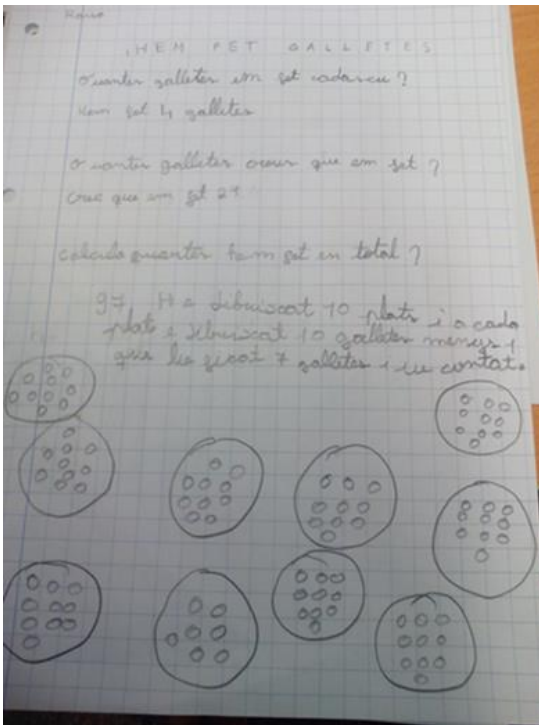 HEM FET GALLETES
Quantes galletes em fet cadascu?
Hem fet 4 galletes
Quantes galletes creus que em fet?
Creus que em fet 27
calcula quantes hem fet en total?
97, He dibuixat 10 plats i a cada
plat e dibuixat 10 galletes menys 1
que he ficat 7 galletes i eu contat.